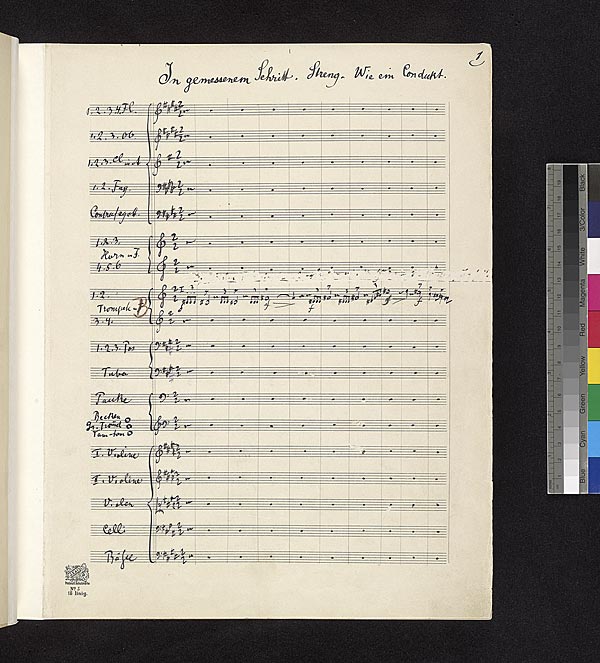 1
In gemessenem Schritt. Streng. Wie ein Condukt.
1. 2. 3. 4. Fl.
1. 2. 3. Ob
1. 2. 3. Cl in A
1. 2. Fag.
Contrafagott.
1. 2. 3.
Horn in F.
4. 5. 6
1. 2.
Trompete in B
3. 4.
1. 2. 3. Pos
Tuba
Pauke
Becken
Gr. Trom̄el
Tam-tam
I. Violine
II. Violine
Violen
Celli
Bässe
Nº 3
18 linig.
Black
3/Color
White
Magenta
Red
Yellow
Green
Cyan
Blue